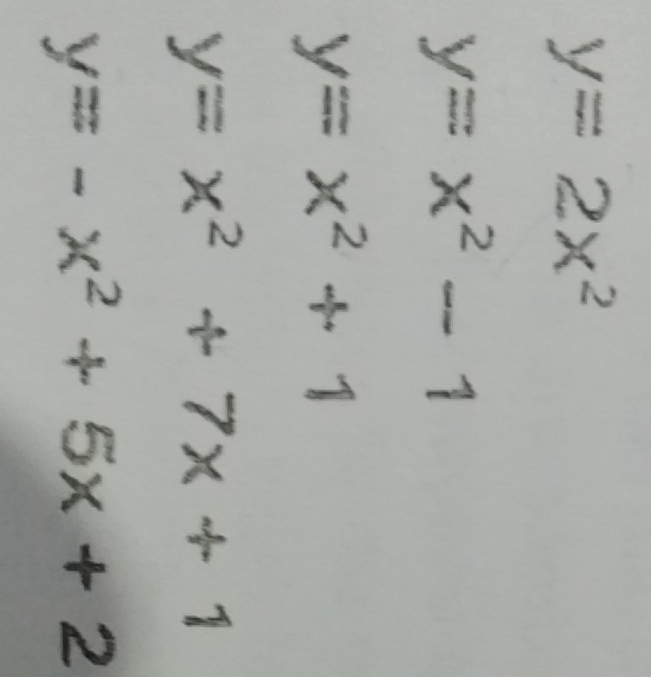 y = 2x²
y = x² - 1
y = x² + 1
y = x² + 7x + 1
y = - x² + 5x + 2